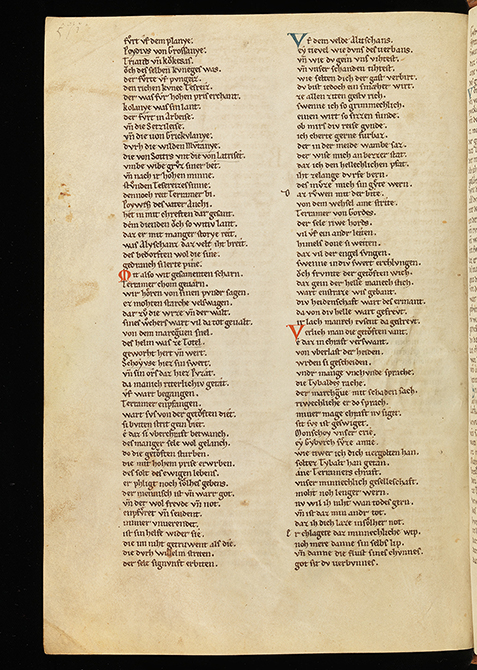 fvrt vf dem planye.
Poydivs von
Triand vn
och des selben kvneges was.
der fvrte vf pvngeiz.
den richen kvnec Tesereiz.
der was fvr hohen pris erchant.
kolanye was sin lant.
der fvrt in arbeise.
vn die Sezzileise.
vn die von Grickvlanye.
dvrh die wilden mvtanye.
die von Sottrs vnt die von Latriset.
vmbe wibe grvz siner bet.
vn nach ir hohen minne.
stvnden Tesereizes sinne.
dennoch reit Terramer bi.
Poywiz des vater Anchi.
het in mit chreften dar gesant.
dem dienden och so witiv lant.
daz er mit manger storye reit.
was Alyschanz daz velt iht breit.
des bedorften wol die sine.
gedranch si lerte pine.
Mit alsvs gesamenten scharn.
Terramer chom gevarn.
wir horen von sinen pynder sagen.
er mohten starche velswagen.
dar zv die wrze vn der walt.
sines vehers wart vil da tot gevalt.
von dem margcraven snel.
des helm was ze Totel.
geworht hert vn wert.
Schoyvse hiez sin swert.
vn sin ors daz hiez Pvzat.
da manich ritterlichiv getat.
vf wart begangen.
Terramer enpfangen.
wart svs von der getovften diet.
si bvtten strit gein biet.
e daz si vberchraft betwanch.
des manger sele wol gelanch.
do die getovften stvrben.
die mit hohem prise erwrben.
des solt des ewigen lebens.
er phligt noch solhes gebens.
der mennisch ist vn warer got.
vn der wol frevde vn not.
enpfvret vn sendent.
immer vnerwendet.
ist sin helfe wider sie.
die im niht getruwent als die.
die dvrh willehelm striten.
der sele signvnft erbiten.
Vf dem velde Alischans.
ey nevel wie dvns des verbans.
vn wie dv gein vns vihtest.
vn vnser schanden tihtest.
wie selten dich der gast verbirt.
dv bist iedoch ein smaher wirt.
ze allen ziten gestv rich.
swenne ich so grimmechlich.
einen wirt so svzzen fvnde.
ob mirs div reise gvnde.
ich cherte gerne fvrbaz.
der in der meide wambe saz.
der wise mich an bezzer stat.
daz ich den hellechlichen pfat.
iht zelange dvrfe bern.
des mvze mich sin gvte wern.
Daz rvwen mit der bite.
von dem wehsel ane strite.
Terramer von Gordes.
der sele riwe hordes.
vil vf ein ander leiten.
himels done si weiten.
daz vil der engel svngen.
swenne indiv swert erchlvngen.
och frvmte der getovften wich.
daz gein der helle manich stich.
wart enstraze vs gebanicht.
div heidenschaft wart des ermant.
da von div helle wart gefrevt.
it lach manech tvsent da gestrevt.
Verlich man die getovften vant.
e daz in chraft verswant.
von vberlast der heiden.
wrden si gescheiden.
vndr mange vnchvnde sprache.
die Tybaldes rache.
der marchgrave mit schaden sach.
rivwechliche er do sprach.
miner mage chraft nv siget.
sit svs ist geswiget.
Monschoy vnser crie.
ey Gyburch svze amie.
wie tiwer ich dich vergolten han.
solte Tybalt han getan.
ane Terramers chraft.
vnser minnechlich geselleschaft.
moht noh lenger wern.
nv wil ih niht wan todes gern.
vn ist daz min ander tot.
daz ih dich laze insolher not.
Er chlagete daz minnechliche wip.
noh mere danne sin selbs lip.
vn danne die flust sines chvnnes.
got sit dv verbvnnes.